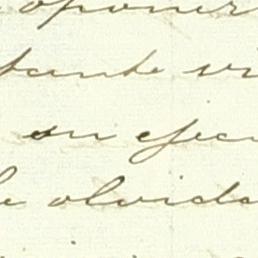 oponer
tante vi
en ejecu
le olvida